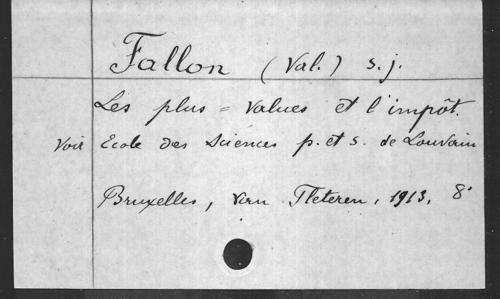 Fallon (Val.) s.j.
Les plus = values et l'impôt.
Voir Ecole des Sciences p. et s. de Louvain
Bruxelles, van Fleteren, 1913, 8°